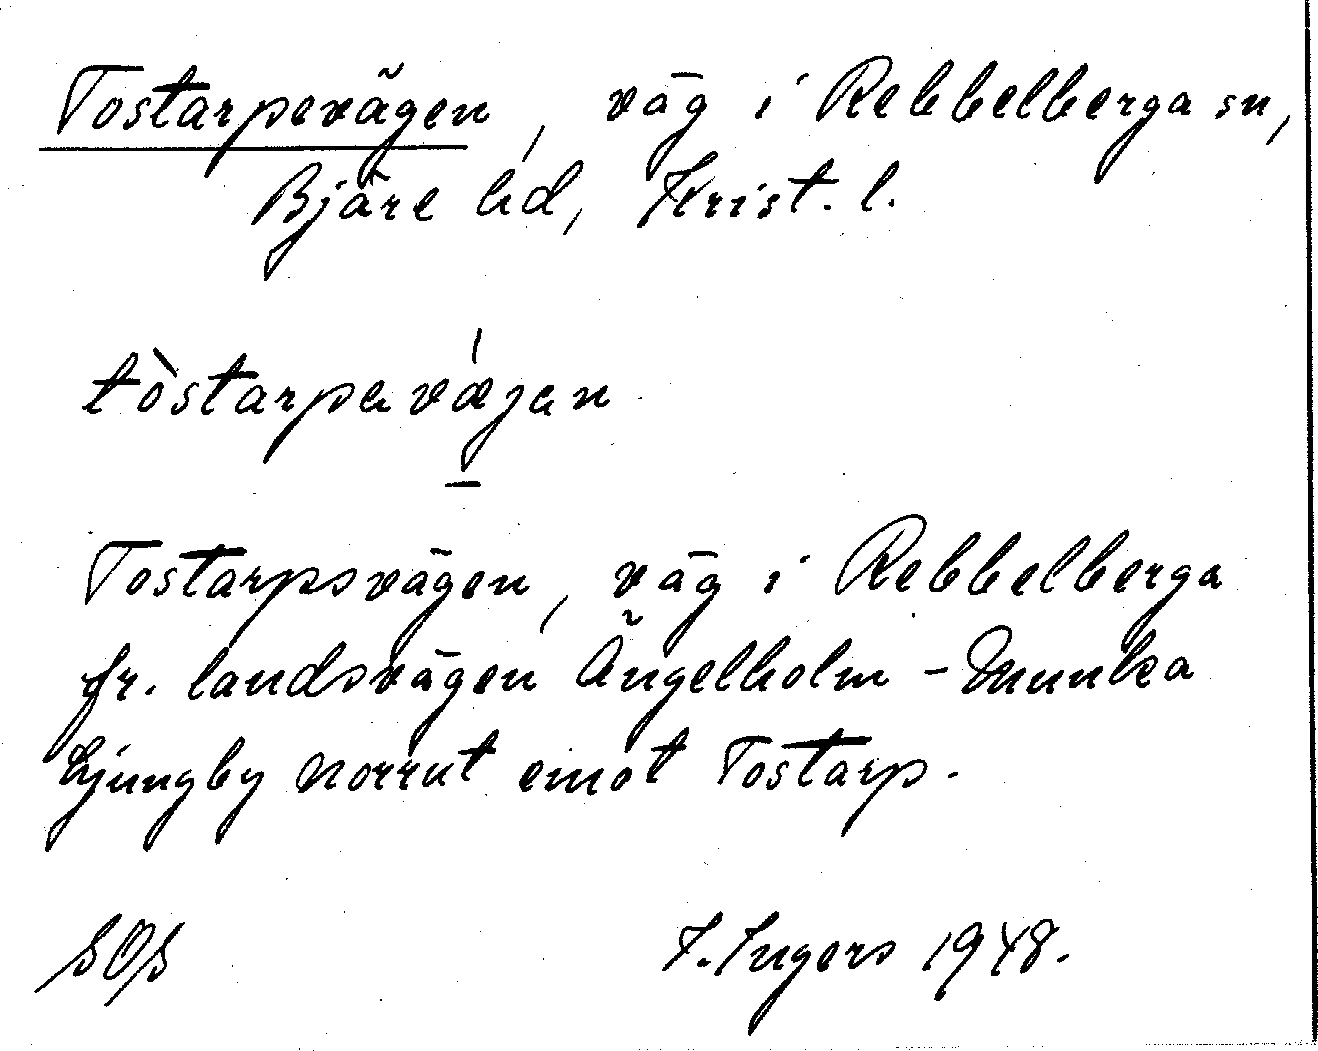 Tostarpevägen, väg i Rebbelberga sn,
Bjäre hd, Krist. l.
tòstarpavǽjan
Tostarpsvägen, väg i Rebbelberga
fr. landsvägen Ängelholm - Munka
Ljungby norrut emot Tostarp.
SOS I. Ingers 1948.